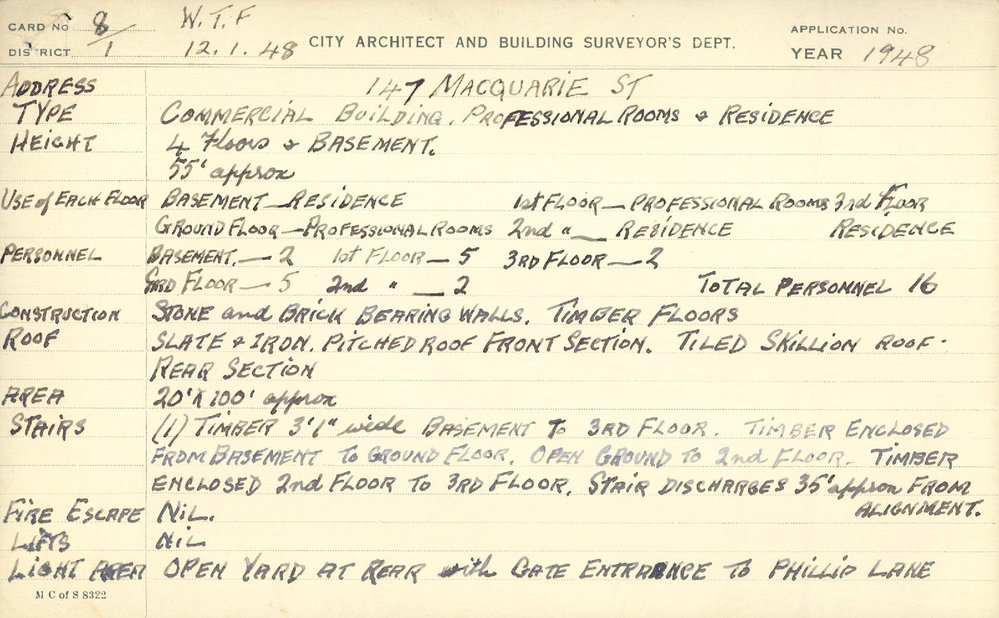 CARD No 8 W.T.F APPLICATION No.
DISTRICT 1 12.1.48 CITY ARCHITECT AND BUILDING SURVEYOR'S DEPT. YEAR 1948
ADDRESS 147 MACQUARIE ST
TYPE COMMERCIAL BUILDING. PROFESSIONAL ROOMS & RESIDENCE
HEIGHT 4 Floors & BASEMENT.
55' approx
USE of EACH FLOOR BASEMENT—RESIDENCE 1st FLOOR — PROFESSIONAL ROOMS 3rd FLOOR
GROUND FLOOR—PROFESSIONAL ROOMS 2nd " — RESIDENCE RESIDENCE
PERSONNEL BASEMENT.—2 1st FLOOR—5 3RD FLOOR—2
GRD FLOOR—5 2nd " —2 TOTAL PERSONNEL 16
CONSTRUCTION STONE and BRICK BEARING WALLS. TIMBER FLOORS
ROOF SLATE & IRON. PITCHED ROOF FRONT SECTION. TILED SKILLION ROOF.
REAR SECTION
AREA 20' X 100' approx
STAIRS (1) TIMBER 3'1" wide BASEMENT TO 3RD FLOOR. TIMBER ENCLOSED
FROM BASEMENT TO GROUND FLOOR. OPEN GROUND TO 2nd FLOOR. TIMBER
ENCLOSED 2nd FLOOR TO 3RD FLOOR. STAIR DISCHARGES 35' approx FROM
ALIGNMENT.
FIRE ESCAPE NIL.
LIFTS NIL
LIGHT AREA OPEN YARD AT REAR with GATE ENTRANCE TO PHILLIP LANE
M C of S 8322